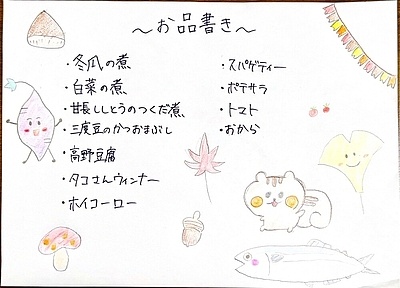 〜お品書き〜
・冬瓜の煮
・白菜の煮
・甘長ししとうのつくだ煮
・三度豆のかつおまぶし
・高野豆腐
・タコさんウィンナー
・ホイコーロー
・スパゲティー
・ポテサラ
・トマト
・おから